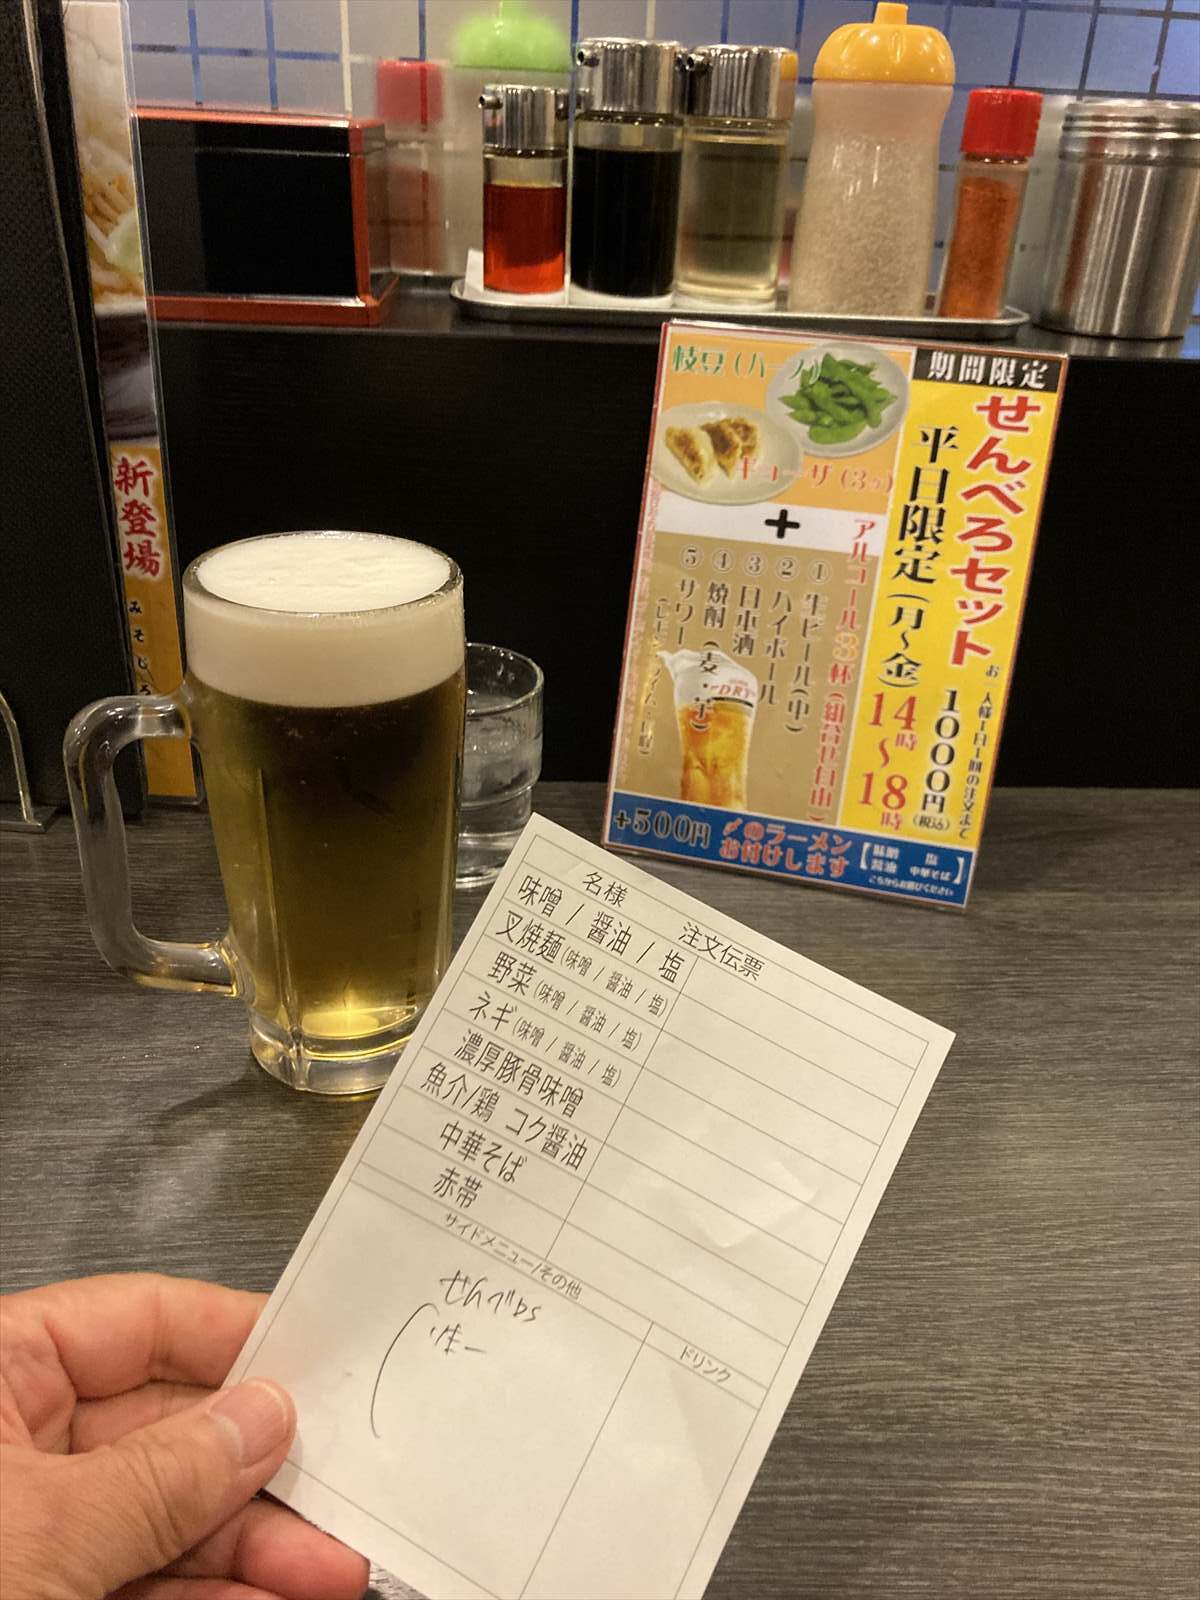 新登場
みそじろ
期間限定
せんべろセット
お一人様1日1回の注文まで
1000円
(税込)
平日限定(月～金)
14時～18時
枝豆(ハーフ)
ギョーザ(3つ)
+
アルコール3杯(組合せ自由)
①生ビール(中)
②ハイボール
③日本酒
④焼酎(麦・芋)
⑤サワー
DRY
+500円
〆のラーメン
お付けします
【味噌 塩
醤油 中華そば】
こちからお選びください
名様 注文伝票
味噌 / 醤油 / 塩
叉焼麺(味噌 / 醤油 / 塩)
野菜(味噌 / 醤油 / 塩)
ネギ(味噌 / 醤油 / 塩)
濃厚豚骨味噌
魚介/鶏 コク醤油
中華そば
赤帯
サイドメニュー/その他
ドリンク
せんべろ
生一